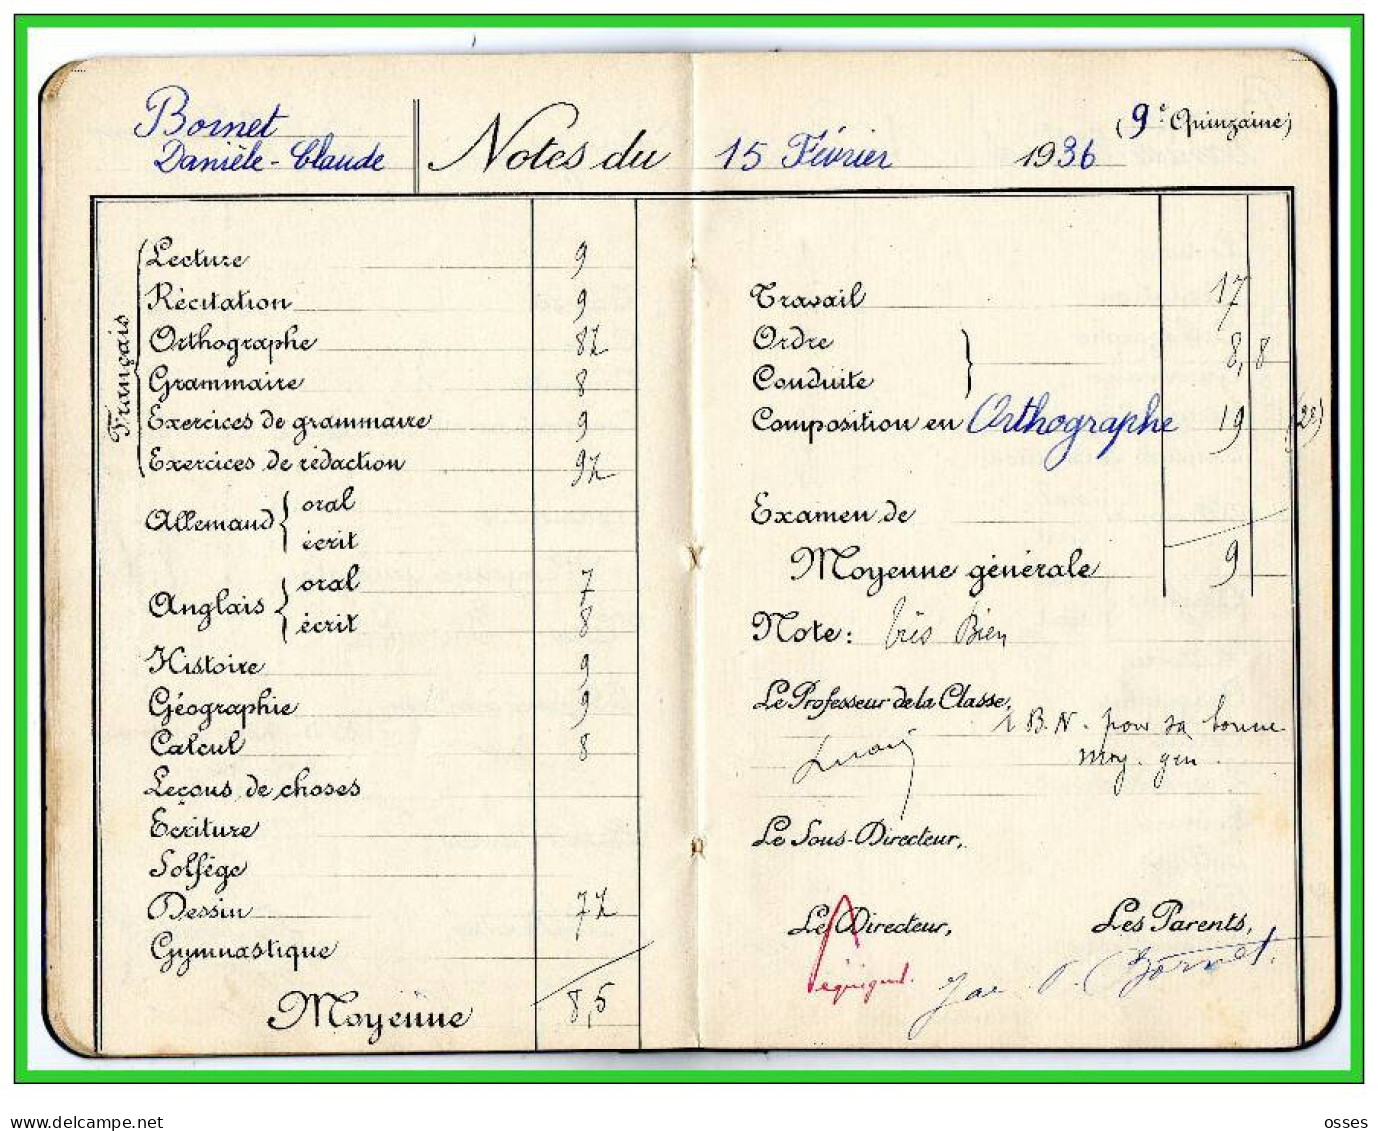 Bornet
Danièle-Claude
Notes du 15 Février 1936
(9e Quinzaine)
Français
Lecture 9
Récitation 9
Orthographe 8½
Grammaire 8
Exercices de grammaire 9
Exercices de rédaction 9½
Allemand
oral
écrit
Anglais
oral 7
écrit 8
Histoire 9
Géographie 9
Calcul 8
Leçons de choses
Ecriture
Solfège
Dessin 7½
Gymnastique
Moyenne 8,5
Travail 17
Ordre
Conduite
8,8
Composition en Orthographe 19 (2e)
Examen de
Moyenne générale 9
Note: très Bien
Le Professeur de la Classe,
1 B.N. pour sa bonne
moy. gen.
Le Sous-Directeur,
Le Directeur,
Les Parents,
Bornet.
www.delcampe.net
osses